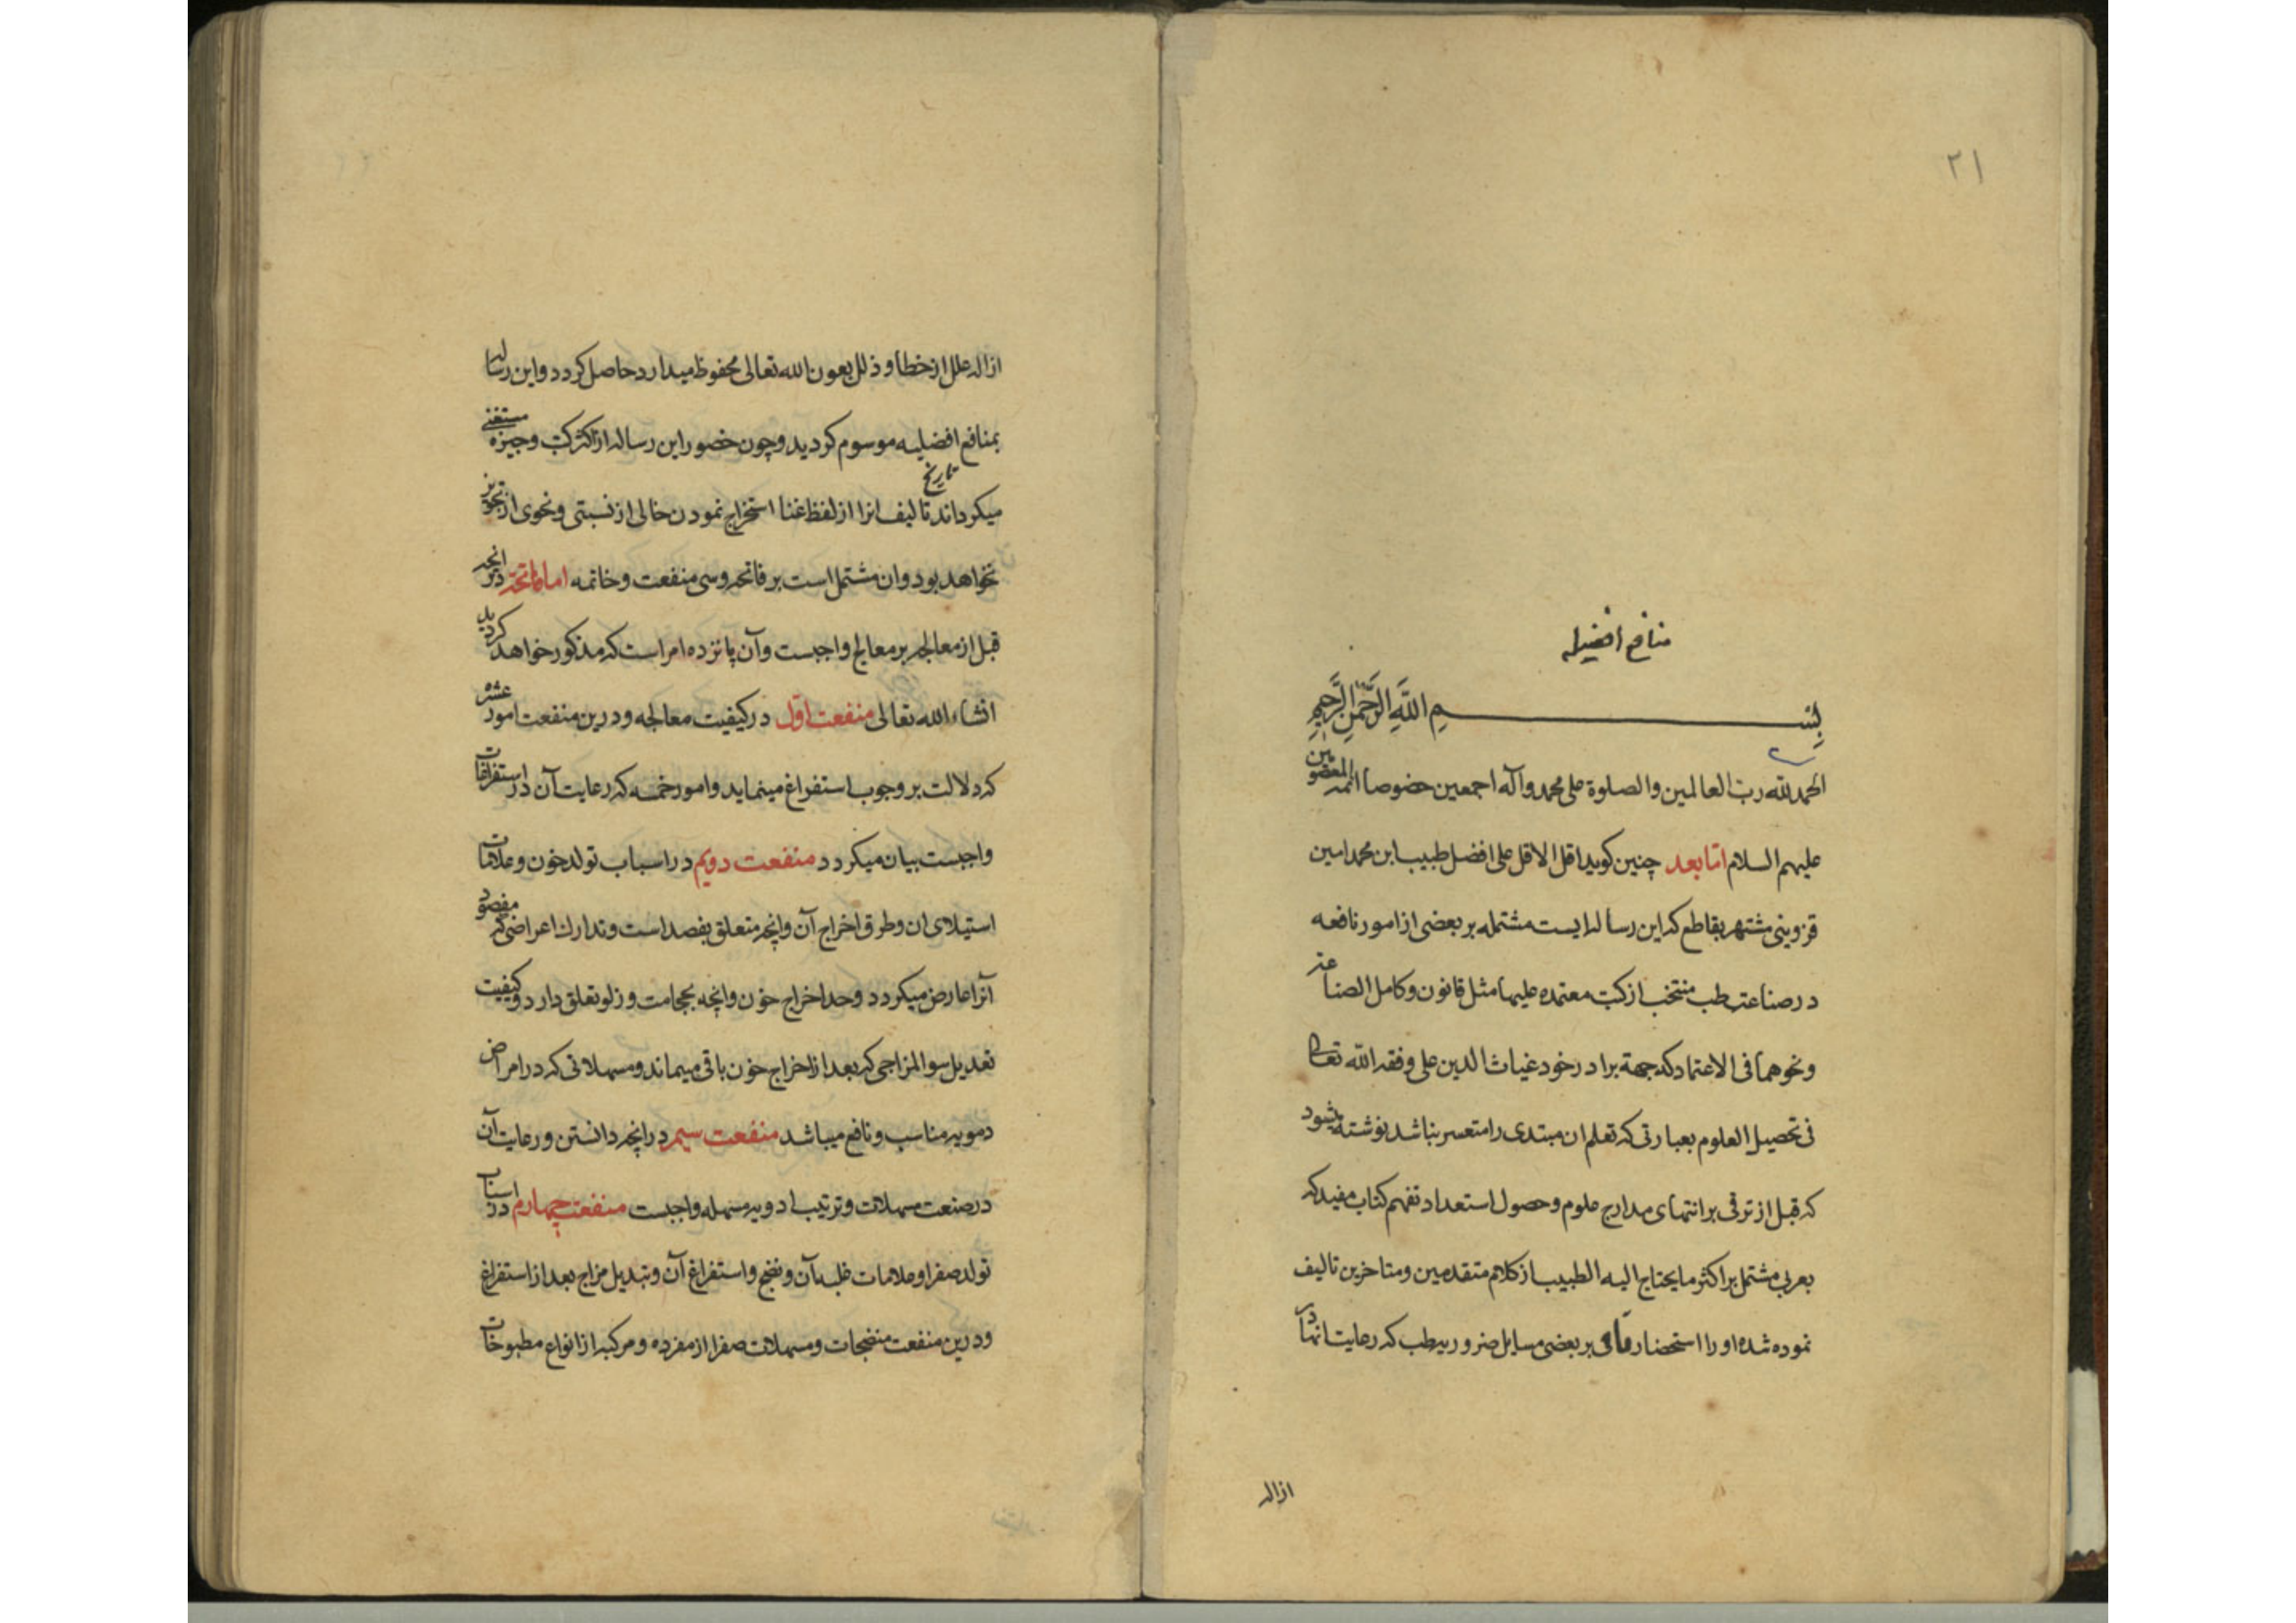 ٢١
منافع افضلیه
بِسْمِ اللّٰهِ الرَّحْمٰنِ الرَّحِیمِ
الحمدلله رب العالمین والصلوة علی محمد وآله اجمعین خصوصا ائمة المعصومین
علیهم السلام امّا بعد چنین کوید اقل الاقل علی افضل طبیب ابن محمد امین
قزوینی مشتهر بقاطع که این رساله ایست مشتمله بر بعضی از امور نافعه
در صناعته طب منتخب از کتب معتمده علیها مثل قانون وکامل الصناعته
ونحوهما فی الاعتماد که جهة برادر خود غیاث الدین علی وفقه الله تعالی
فی تحصیل العلوم بعبارتی که تعلم ان مبتدی را متعسر نباشد نوشته میشود
که قبل از ترقی بر انتهای مدارج علوم وحصول استعداد تفهم کتاب مفید که
بعربی مشتمل بر اکثر ما یحتاج الیه الطبیب از کلام متقدمین ومتاخرین تالیف
نموده شده او را استحضار مافی بر بعضی مسایل ضروریه طب که رعایت انها در
ازاله
ازاله علل از خطا و ذلل بعون الله تعالی محفوظ میدارد حاصل کردد واین رساله
بمنافع افضلیه موسوم کردید وچون حضور این رساله از اکثر کتب وجیزه مستغنی
میکرداند تاریخ تالیف انرا از لفظ غنا استخراج نمودن خالی از نسبتی ونحوی از تجویز
نخواهد بود وان مشتمل است بر فاتحه وسی منفعت وخاتمه اما فاتحه در انچه
قبل از معالجه بر معالج واجبست وآن پانزده امر است که مذکور خواهد کردید
انشاء الله تعالی منفعت اوّل در کیفیت معالجه ودرین منفعت امور عشره
که دلالت بر وجوب استفراغ مینماید وامور خمسه که رعایت آن در استفراغات
واجبست بیان میکردد منفعت دویم در اسباب تولد خون وعلامات
استیلای ان وطرق اخراج آن وانچه متعلق بفصد است وتدارک اعراضی که مفصود
آنرا عارض میکردد وحد اخراج خون وانچه بحجامت وزلو تعلق دارد وکیفیت
تعدیل سوالمزاجی که بعد از اخراج خون باقی میماند ومسهلاتی که در امراض
دمویه مناسب ونافع میباشد منفعت سیم در انچه دانستن ورعایت آن
در صنعت مسهلات وترتیب ادویه مسهله واجبست منفعت چهارم در اسباب
تولد صفرا وعلامات غلبه آن ونضج واستفراغ آن وتبدیل مزاج بعد از استفراغ
ودرین منفعت منضجات ومسهلات صفرا از مفرده ومرکبه از انواع مطبوخات